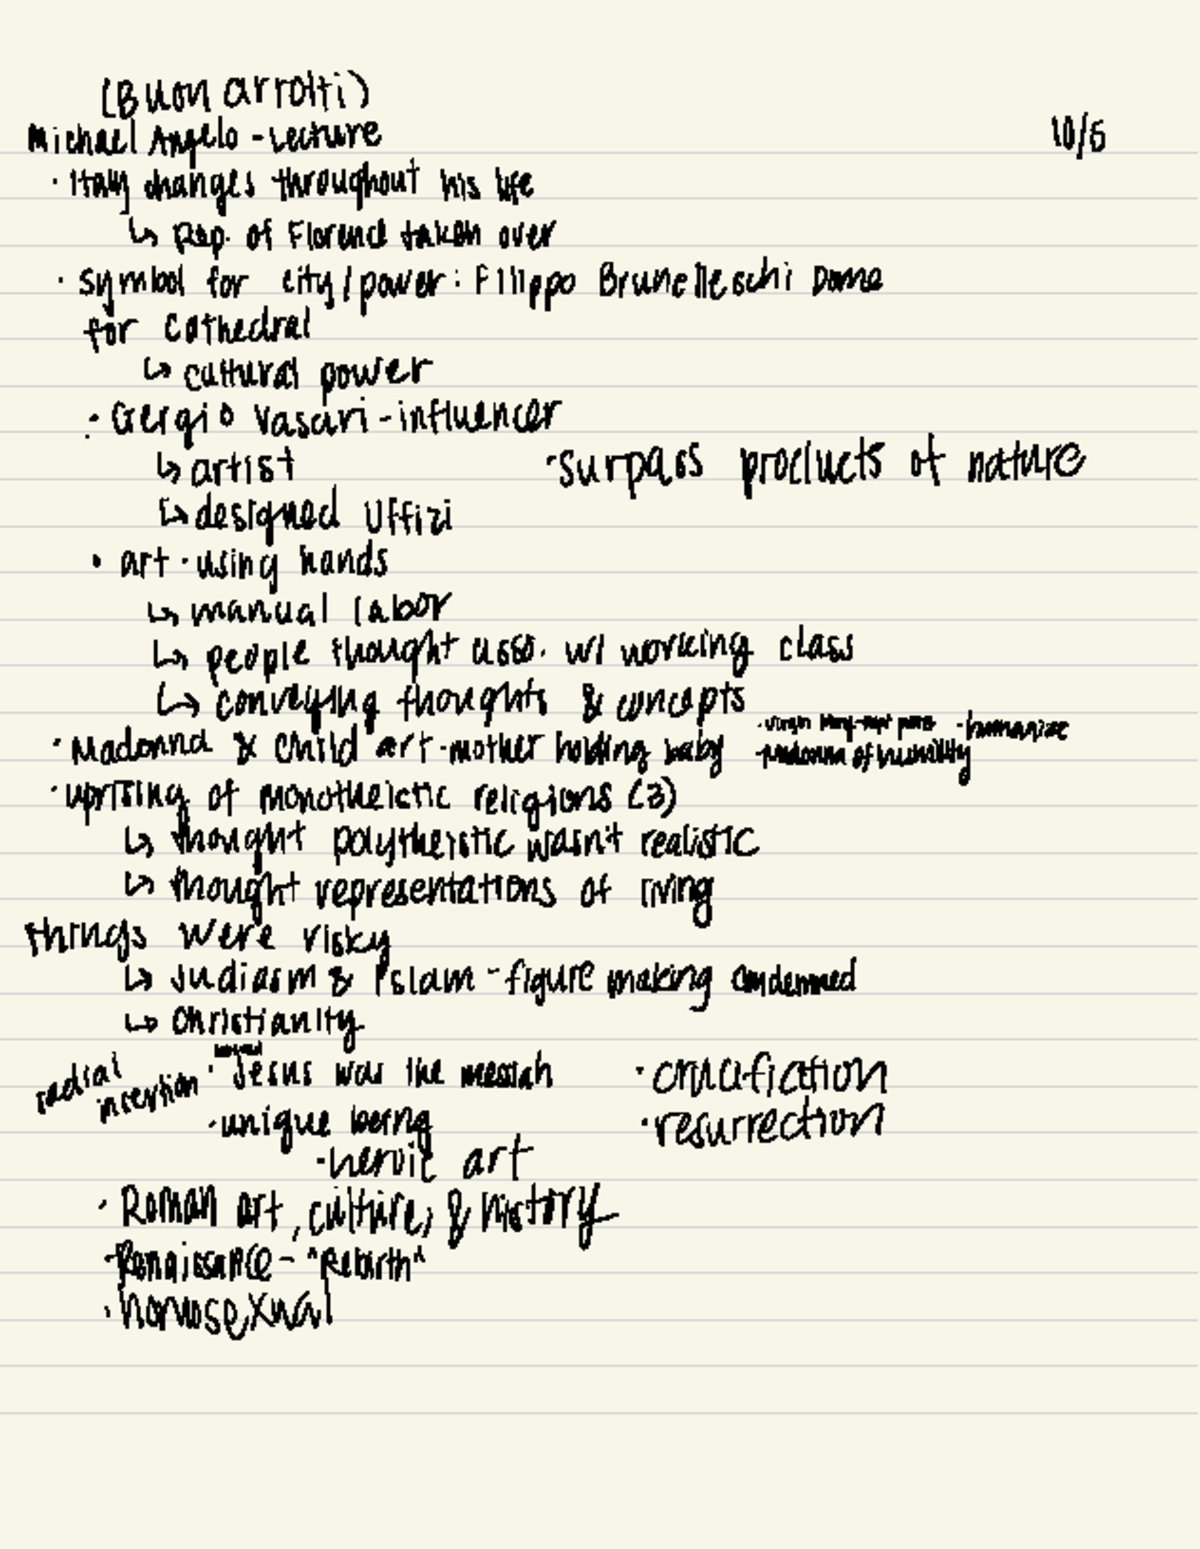 (Buon arrolti)
Michael Angelo - Lecture 10/5
· Italy changes throughout his life
↳ Rep. of Florence taken over
· symbol for city/power: Filippo Brunelleschi Dome
for Cathedral
↳ cultural power
· Gergio Vasari - influencer
↳ artist · surpass products of nature
↳ designed Uffizi
· art · using hands
↳ manual labor
↳ people thought asso. w/ working class
↳ conveying thoughts & concepts
· Madonna & Child art - mother holding baby · virgin · humanize
· Madonna of humility
· uprising of monotheistic religions (3)
↳ thought polytheistic wasn't realistic
↳ thought representations of living
things were risky
↳ Judiasm & Islam - figure making condemned
↳ Christianity
radial insertion · Jesus was the messiah · crucifiction
· unique being · resurrection
· heroic art
· Roman art, culture, & history
· Renaissance - "Rebirth"
· homosexual